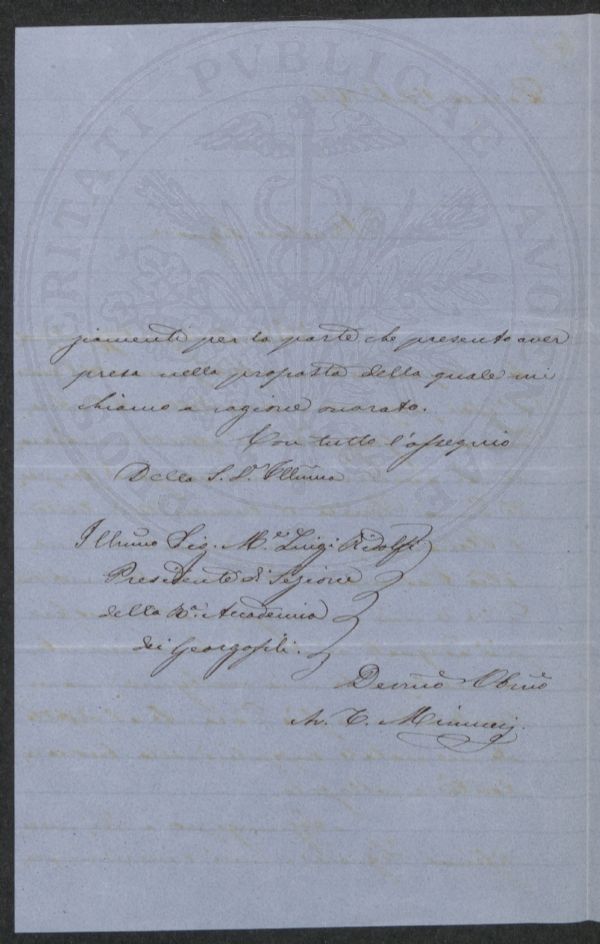 PROSPERITATI PUBLICAE AUGENDAE
ziamenti per la parte che presento aver
presa nella proposta della quale mi
chiamo a ragione onorato.
Con tutto l'ossequio
Della S. V. Illma
Illmo Sig. M.se Luigi Ridolfi
Presidente di Sezione
della R. Accademia
dei Georgofili.
Devmo Obmo